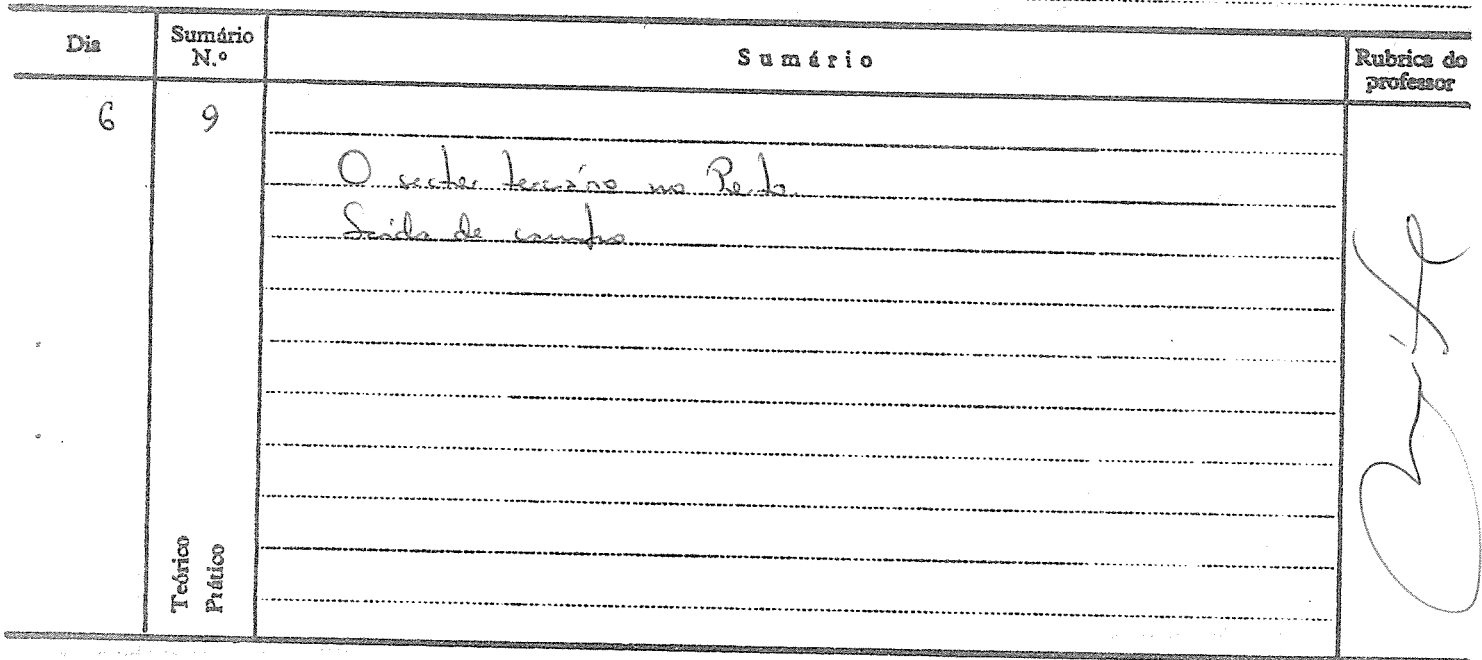 Dia
Sumário N.º
Sumário
Rubrica do professor
6
9
O sector terciário no Porto.
Saída de campo
Teórico
Prático